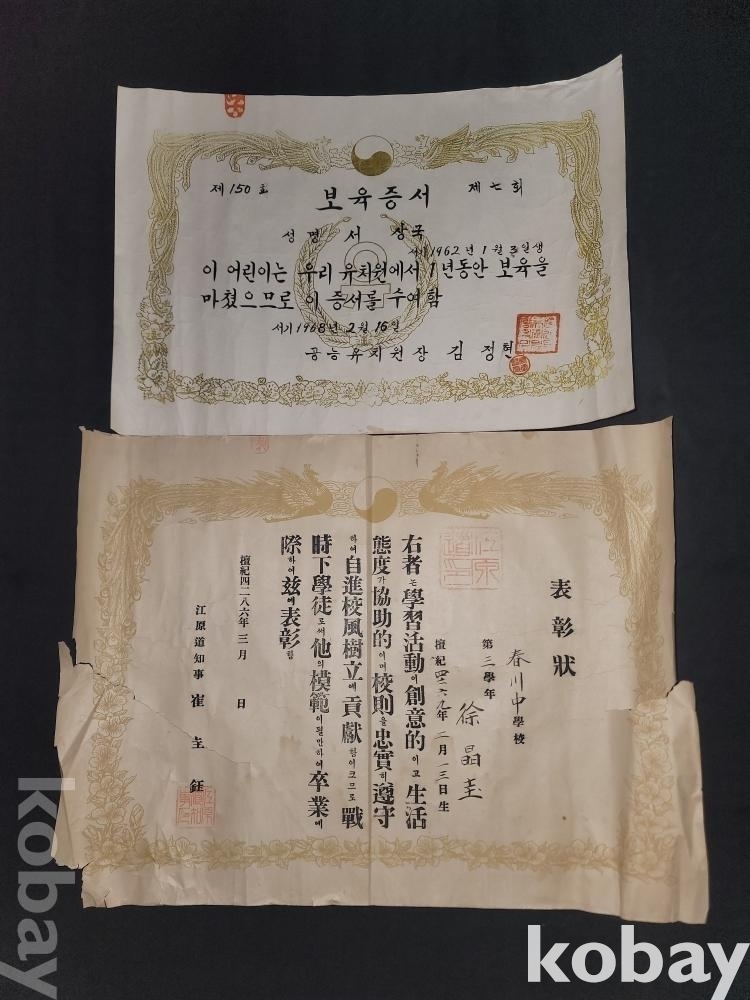 제 150 호
보육증서
제 七 회
성명 서 상국
서기 1962년 1월 3일생
이 어린이는 우리 유치원에서 1년동안 보육을
마쳤으므로 이 증서를 수여함
서기 1968년 2월 16일
공능유치원장 김정현
表彰狀
春川中學校
第三學年 徐晶圭
檀紀四二六九年 二月一三日生
右者는 學習活動이 創意的이고 生活
態度가 協助的이며 校則을 忠實히 遵守
하여 自進校風樹立에 貢獻함이크므로 戰
時下學徒로써 他의 模範이될만하여 卒業에
際하여 玆에 表彰함
檀紀四二八六年 三月 日
江原道知事 崔圭鈺
kobay
kobay